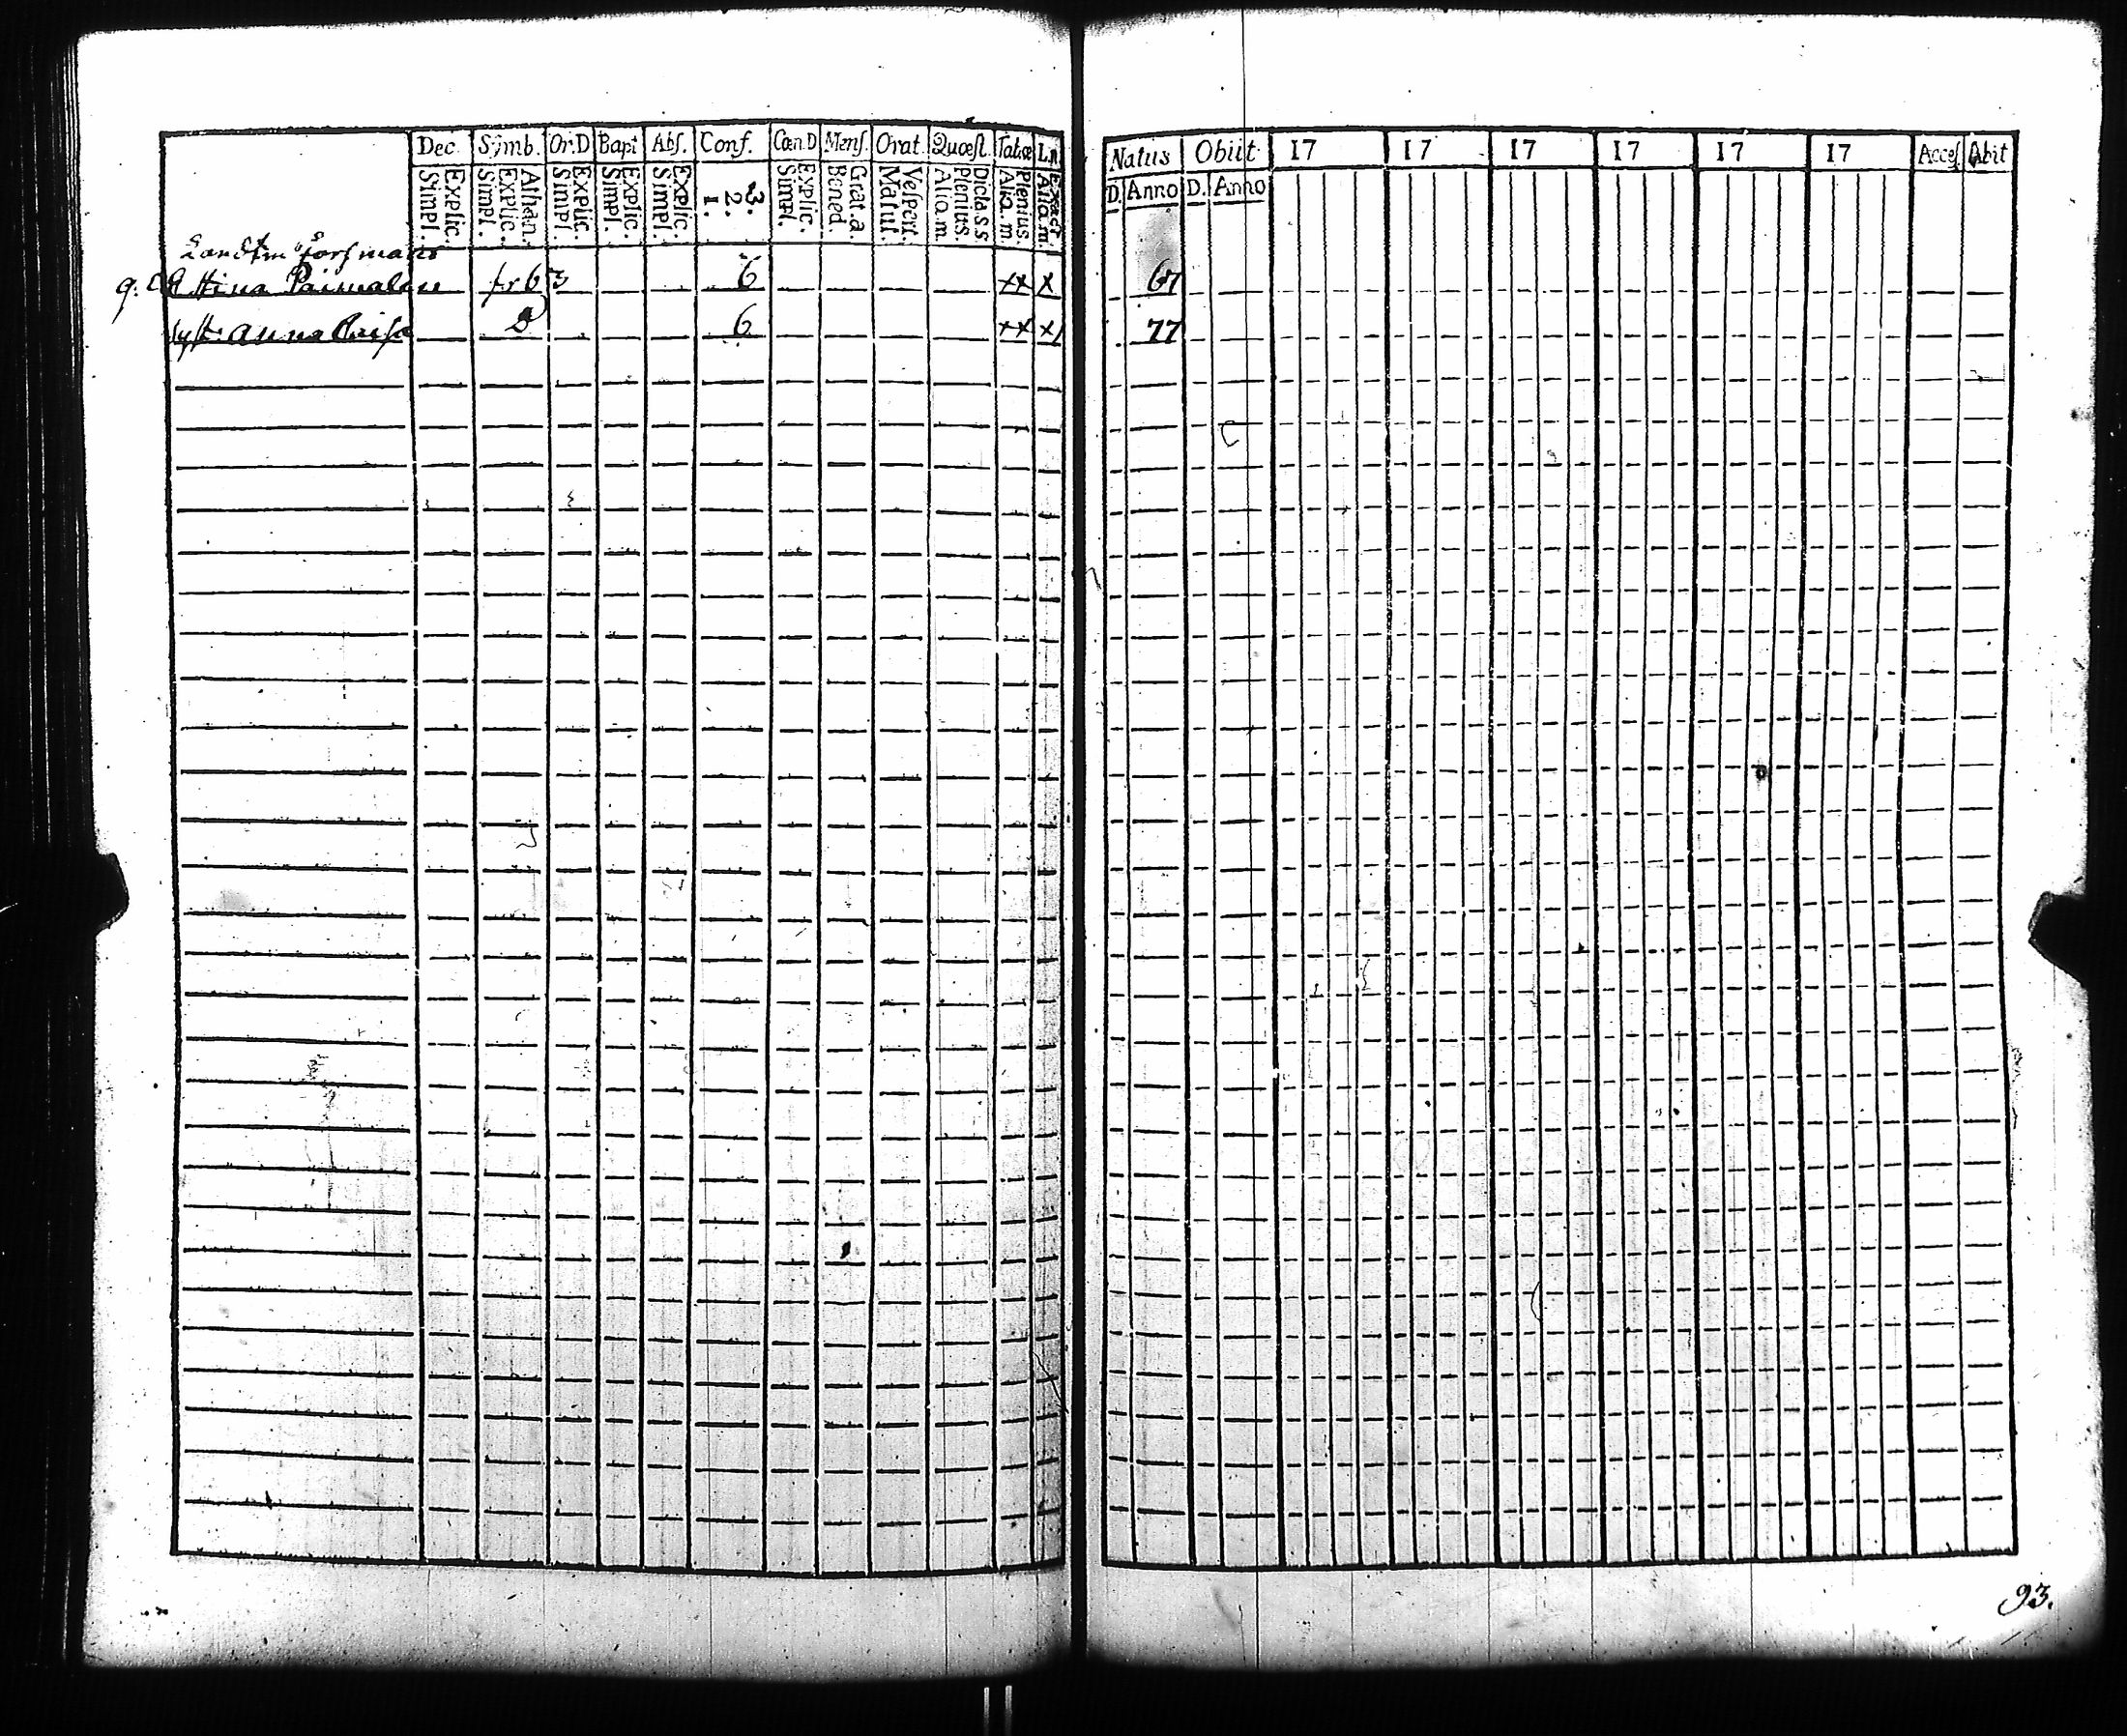 Dec. Symb. Or.D Bapt Abſ. Conf. Cœn.D Menſ. Orat. Quœſt. Tabœ L.n.
Explic. Simpl. Athan. Explic. Simpl. Explic. Simpl. Explic. Simpl. Explic. Simpl. 3. 2. 1. Explic. Simpl. Grat.a. Bened. Veſpert. Matut. Dicta.s.s. Plenius. Aliq.m. Plenius. Aliq.m. Exact. Aliq.m.
Natus Obiit 17 17 17 17 17 17 Acceſ. Abit
D. Anno D. Anno
Forsmans
Stina 6 3 6 xx x 67
Syst: Anna Caisa 6 xx x 77
93.